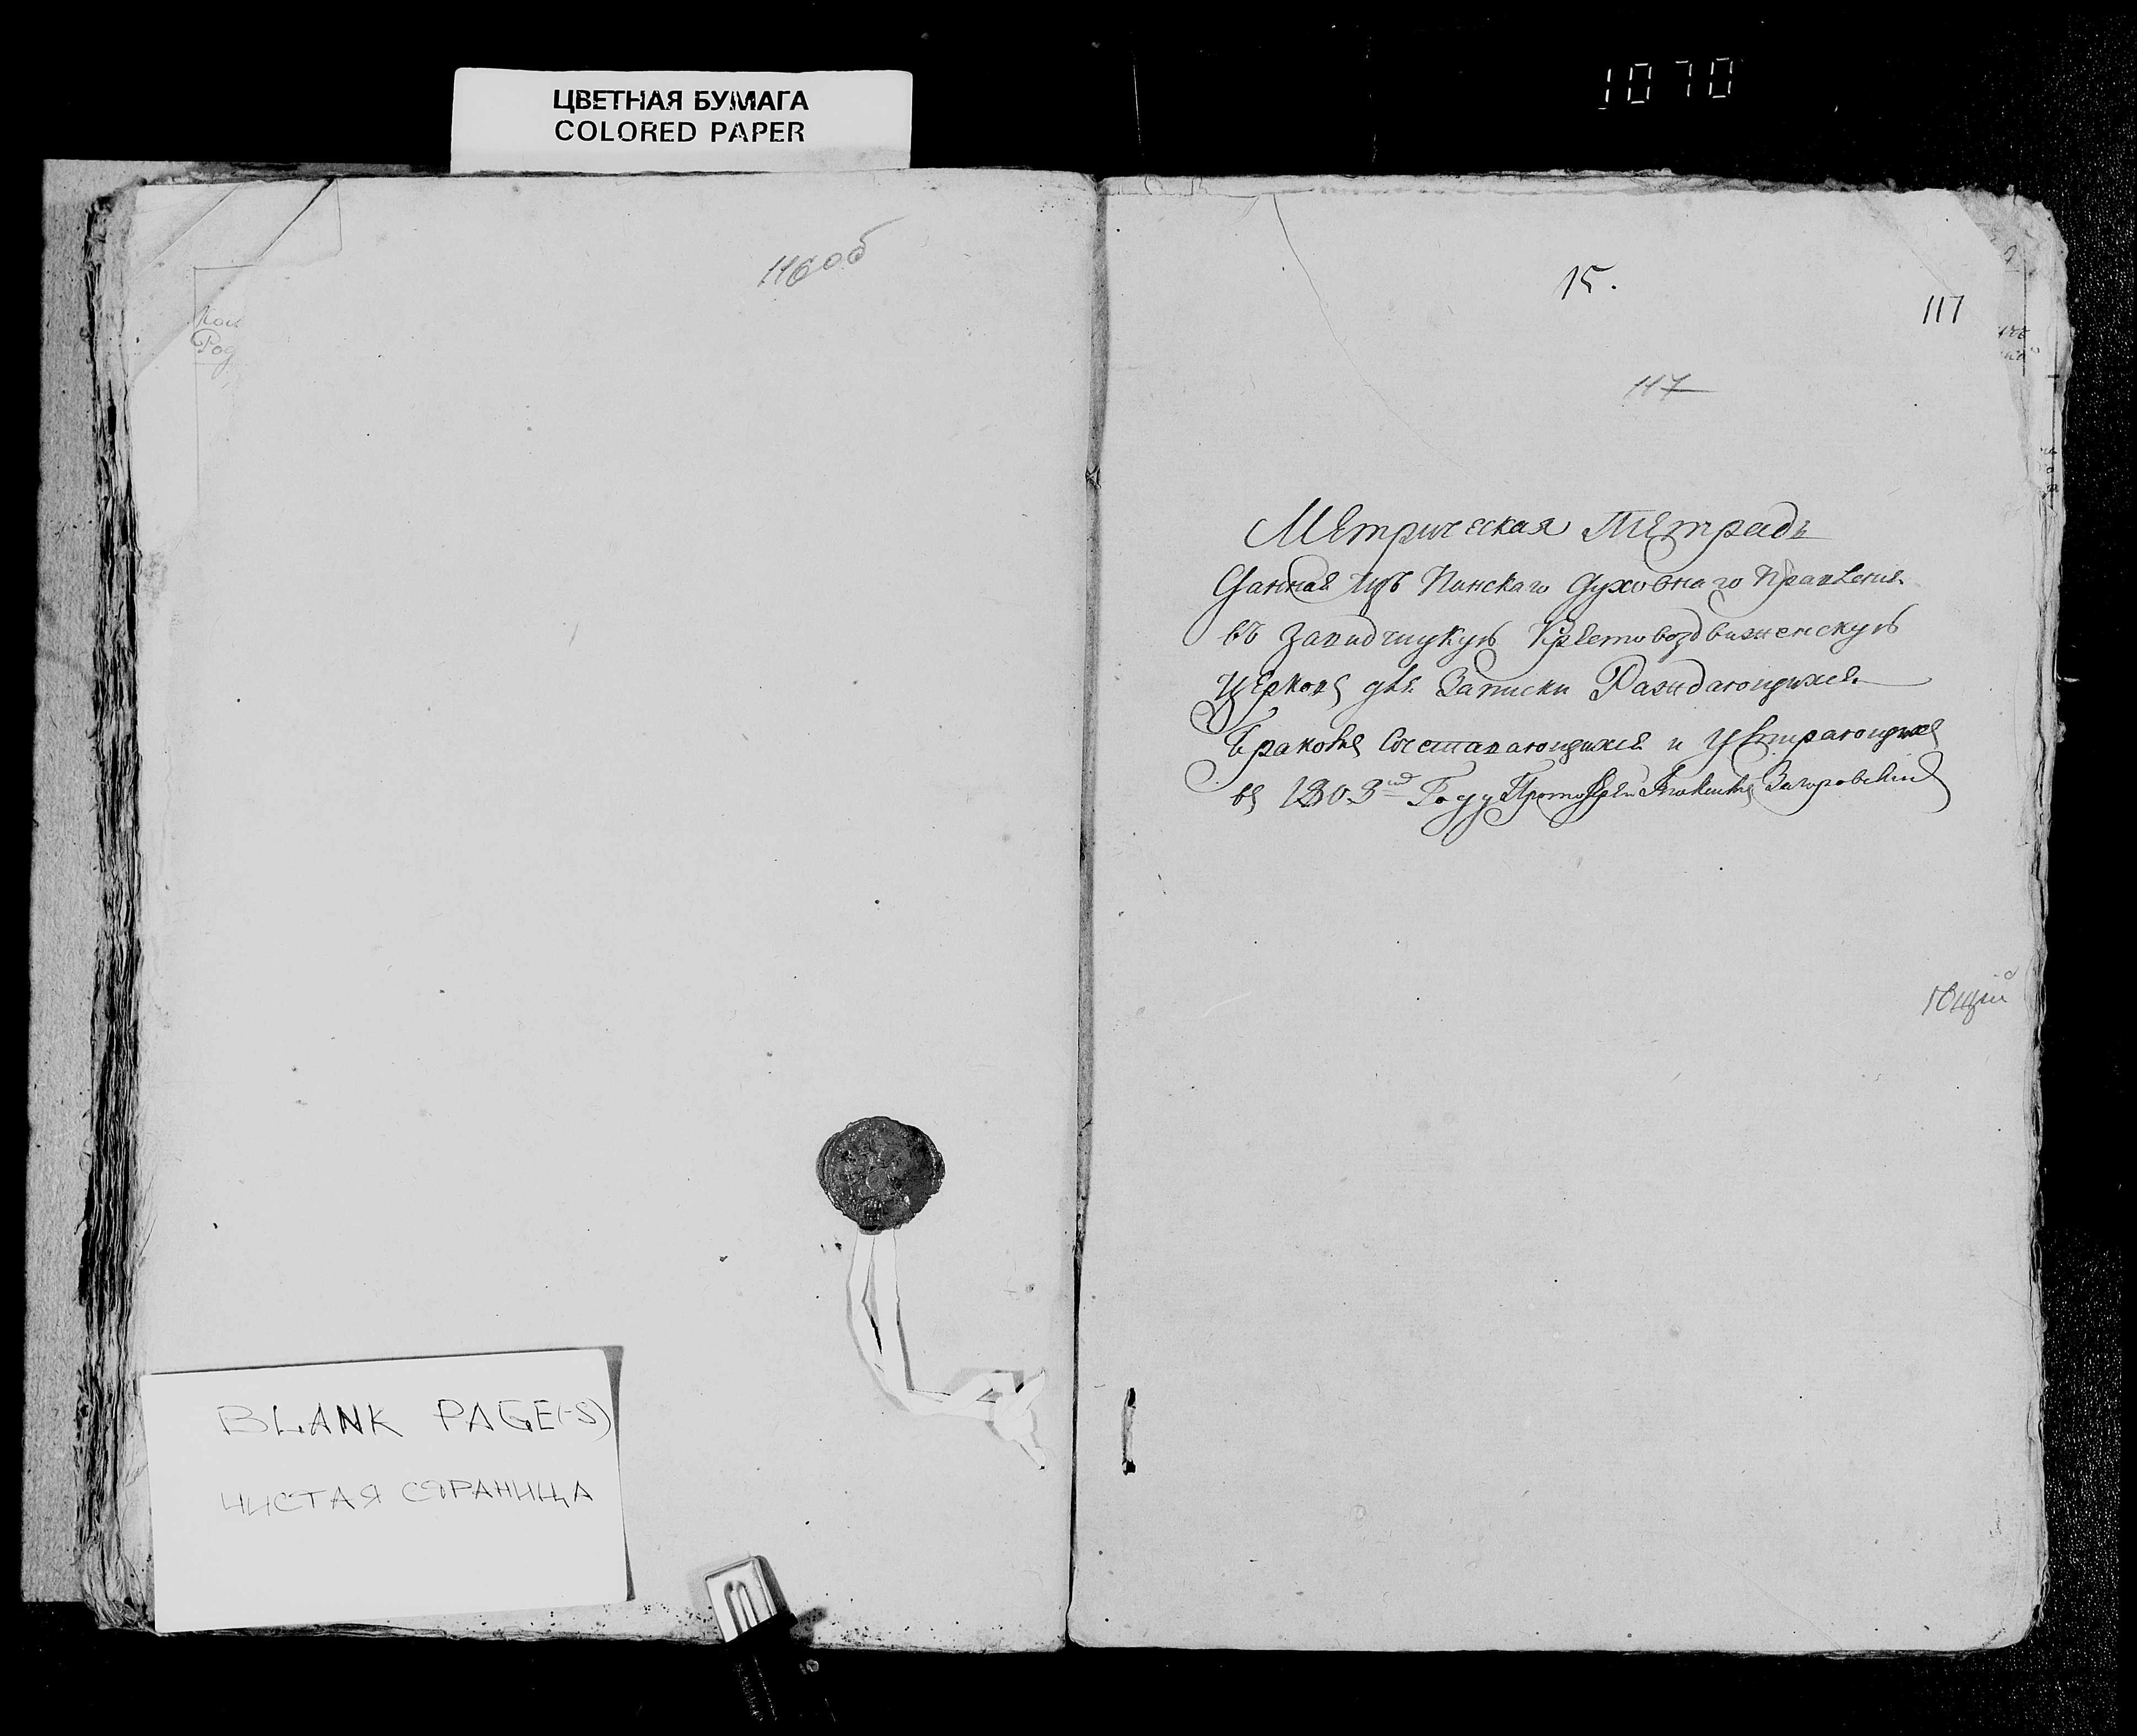 ЦВЕТНАЯ БУМАГА
COLORED PAPER
1070
116об
Кои
Род
15.
117
117
Метрическая Тетрадь
Данная изъ Пинскаго Духовнаго Правления
въ Крестовоздвиженскую
Церковъ для Записки Раждающихся
Браковъ Сочетавающихся и Умирающихся
въ 1803 Году Протоиерей Загоровский
ющій
BLANK PAGE(-S)
ЧИСТАЯ СТРАНИЦА